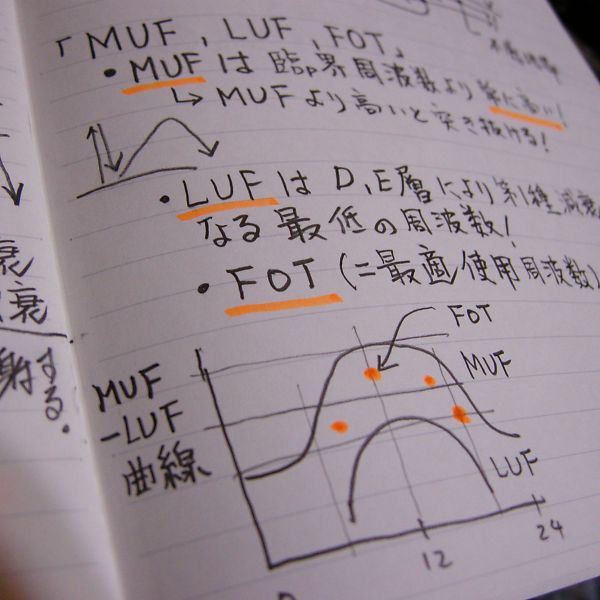 「MUF, LUF, FOT」
・MUFは臨界周波数より常に高い!
↳MUFより高いと突き抜ける!
・LUFはD、E層により第1種減衰
なる最低の周波数!
・FOT(=最適使用周波数)
FOT
MUF
MUF
-LUF
曲線
LUF
12
24
衰
衰
射する。